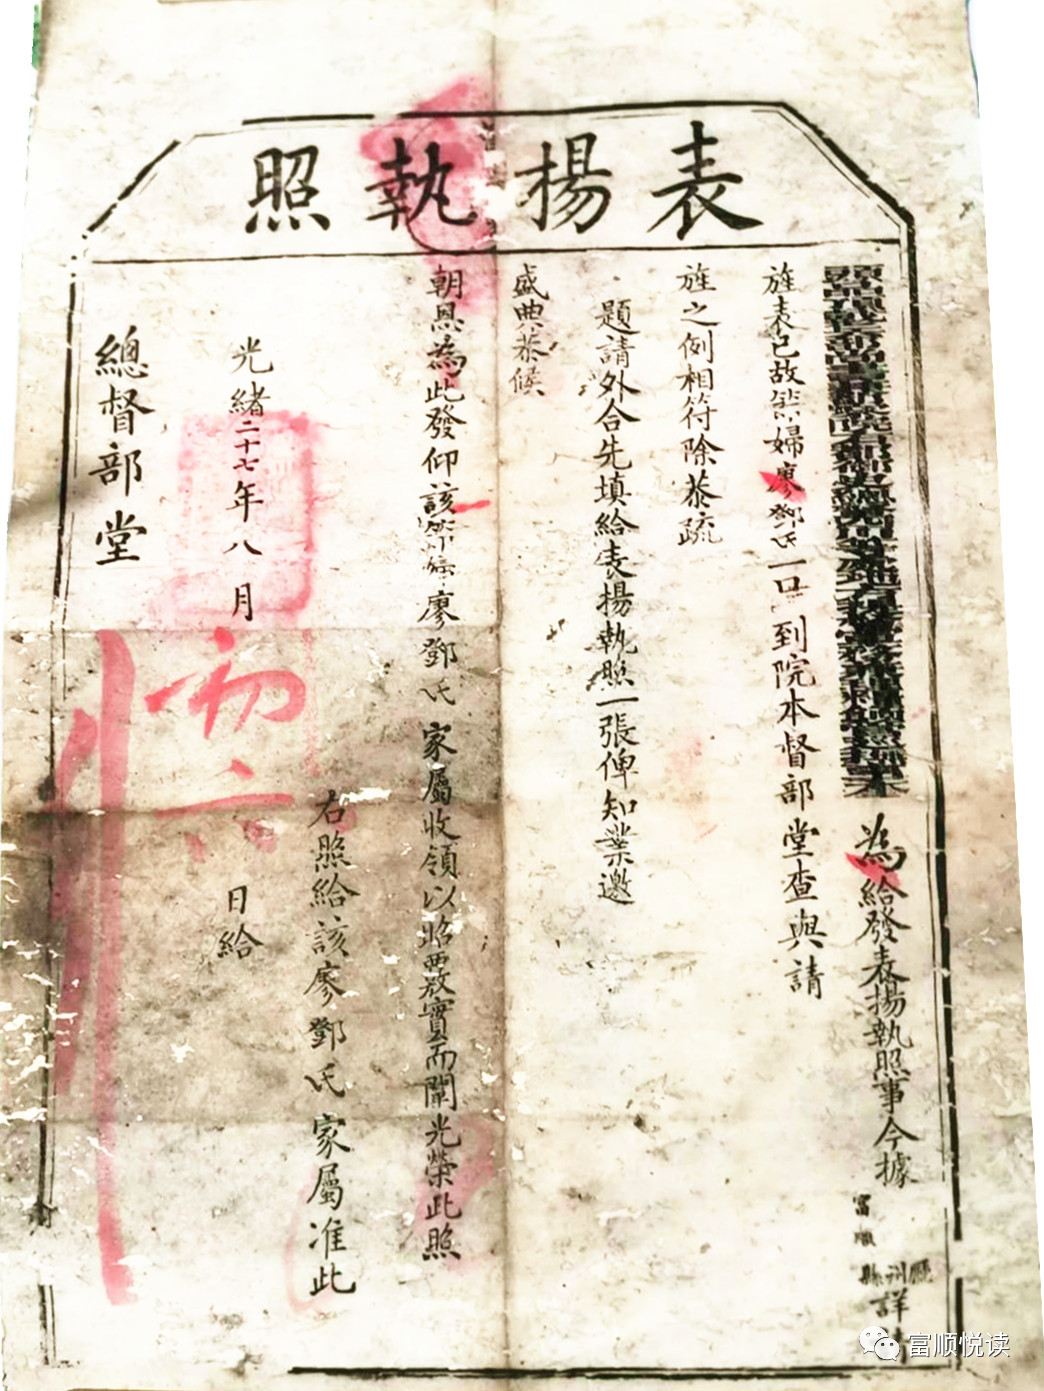 表揚執照
為給發表揚執照事今據
富順
縣州廳
詳
旌表已故
婦廖鄧氏一口到院本督部堂查與請
旌之例相符除恭疏
題請外合先填給表揚執照一張俾知業邀
盛典恭候
朝恩為此發仰該
廖鄧氏家屬收領以昭覈實而闡光榮此照
右照給該廖鄧氏家屬准此
光緒二十七年八月初六日給
總督部堂
富顺悦读